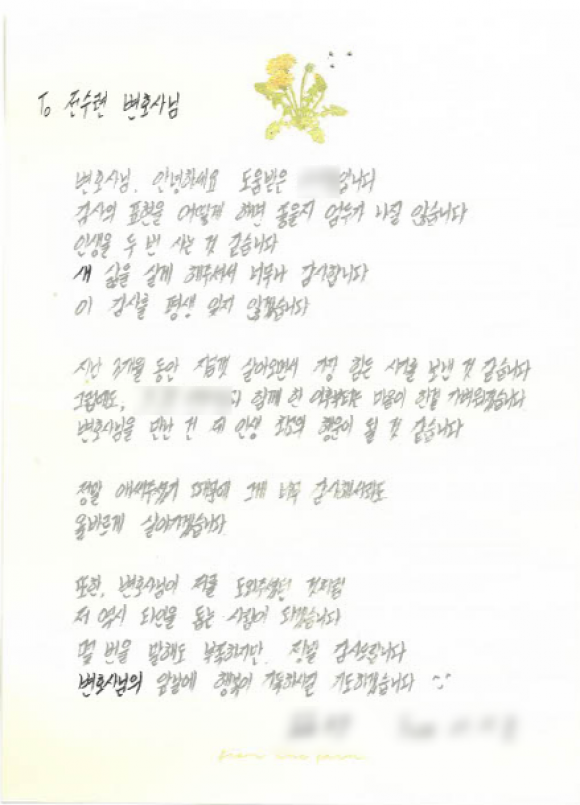 To 전수련 변호사님
변호사님, 안녕하세요 도움받은 입니다
감사의 표현을 어떻게 하면 좋을지 엄두가 나질 않습니다
인생을 두 번 사는 것 같습니다
새 삶을 살게 해주셔서 너무나 감사합니다
이 감사를 평생 잊지 않겠습니다
지난 3개월 동안 지금껏 살아오면서 가장 힘든 시기를 보낸 것 같습니다
그럼에도, 함께 한 이후부터는 마음이 한결 가벼워졌습니다
변호사님을 만난 건 제 인생 최고의 행운이 될 것 같습니다
정말 애써주셨기 때문에 그게 너무 감사해서라도
올바르게 살아가겠습니다
또한, 변호사님이 저를 도와주셨던 것처럼
저 역시 타인을 돕는 사람이 되겠습니다
몇 번을 말해도 부족하지만, 정말 감사드립니다
변호사님의 앞날에 행복이 가득하시길 기도하겠습니다 :)